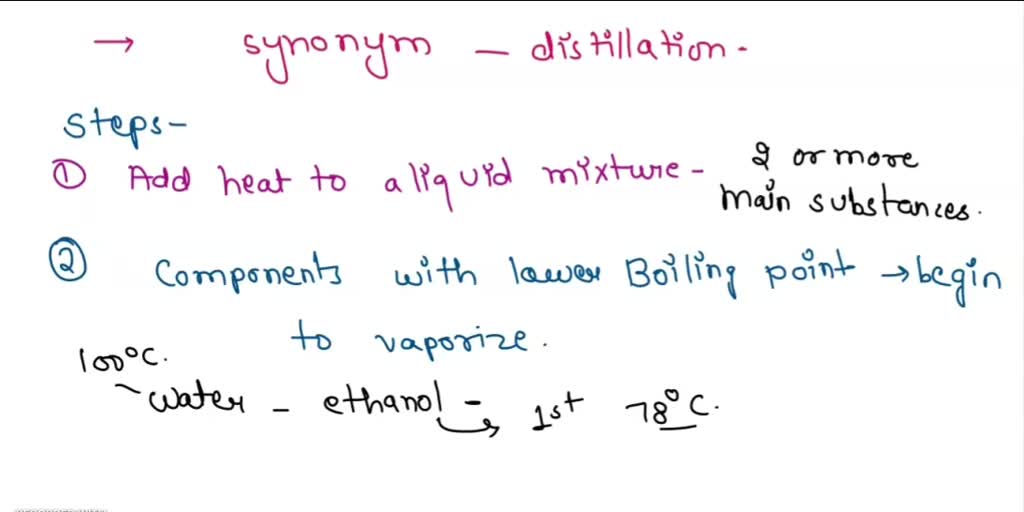 → synonym - distillation.
Steps-
① Add heat to a liquid mixture - 2 or more
main substances.
② Components with lower Boiling point → begin
to vaporize.
100°C.
water - ethanol - 1st 78°C.